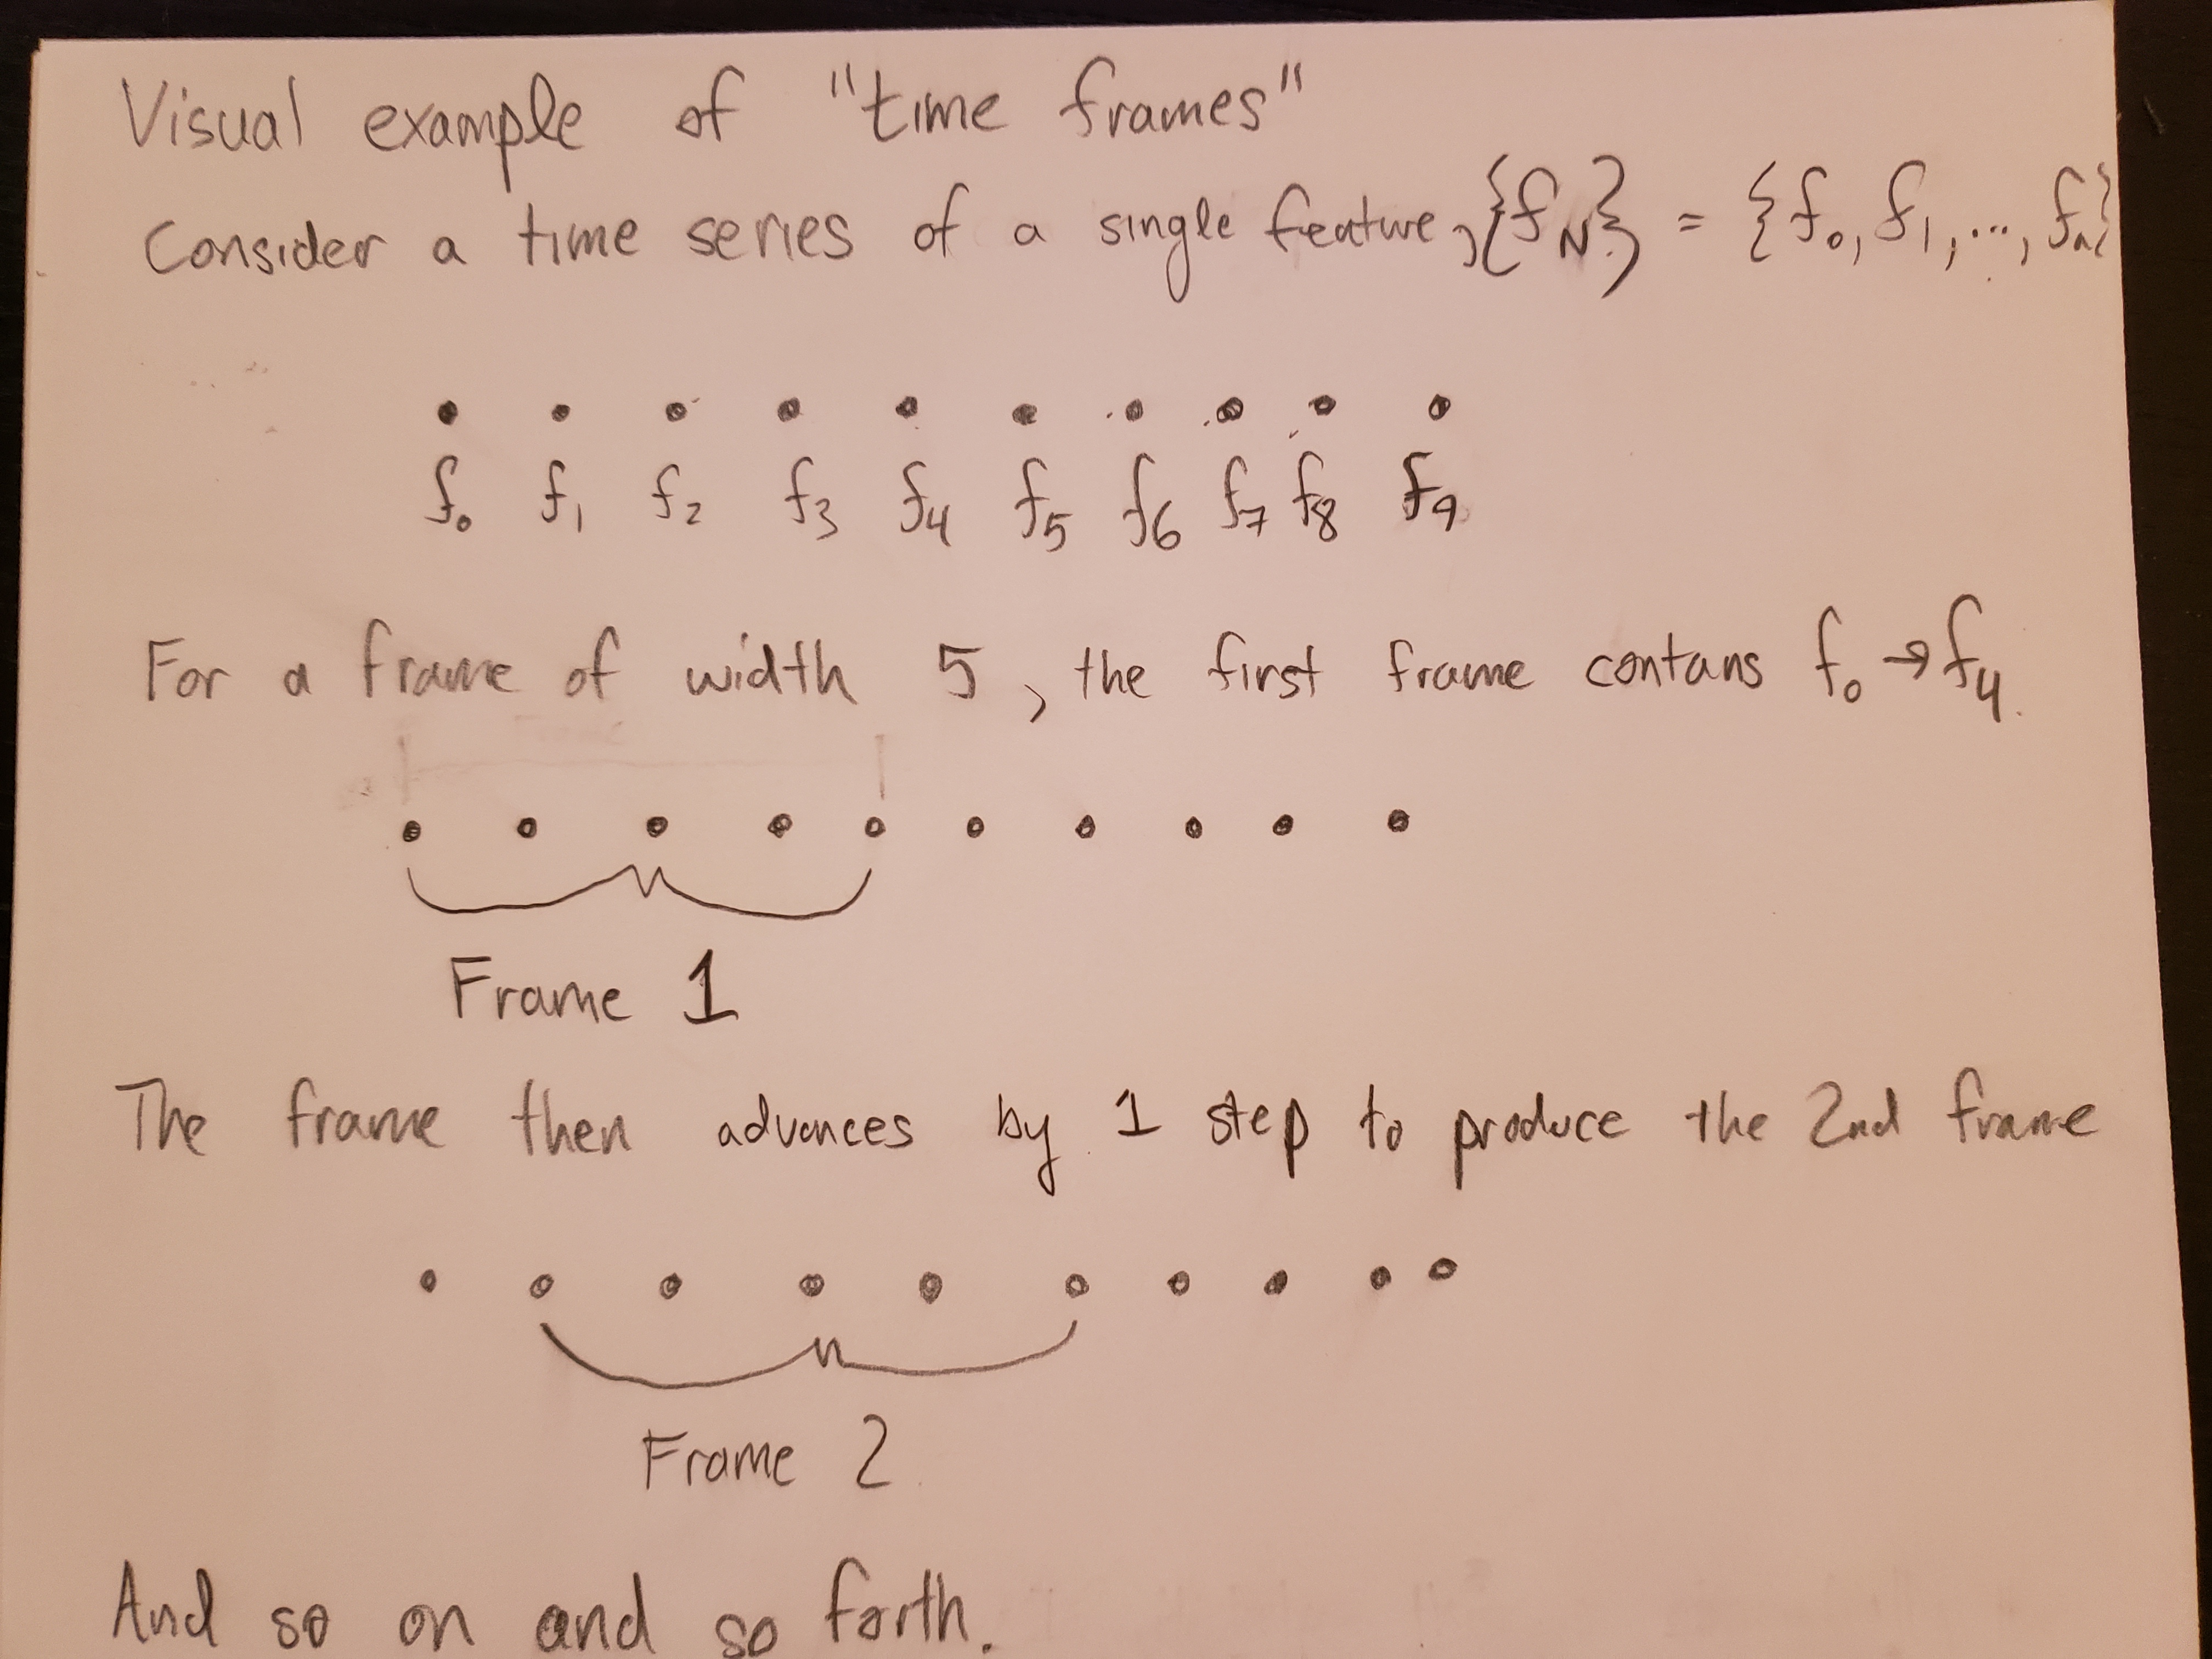 Visual example of "time frames"
Consider a time series of a single feature, {f_N} = {f_0, f_1, ..., f_n}
f_0 f_1 f_2 f_3 f_4 f_5 f_6 f_7 f_8 f_9
For a frame of width 5, the first frame contans f_0 → f_4.
Frame 1
The frame then advances by 1 step to produce the 2nd frame
Frame 2
And so on and so forth.